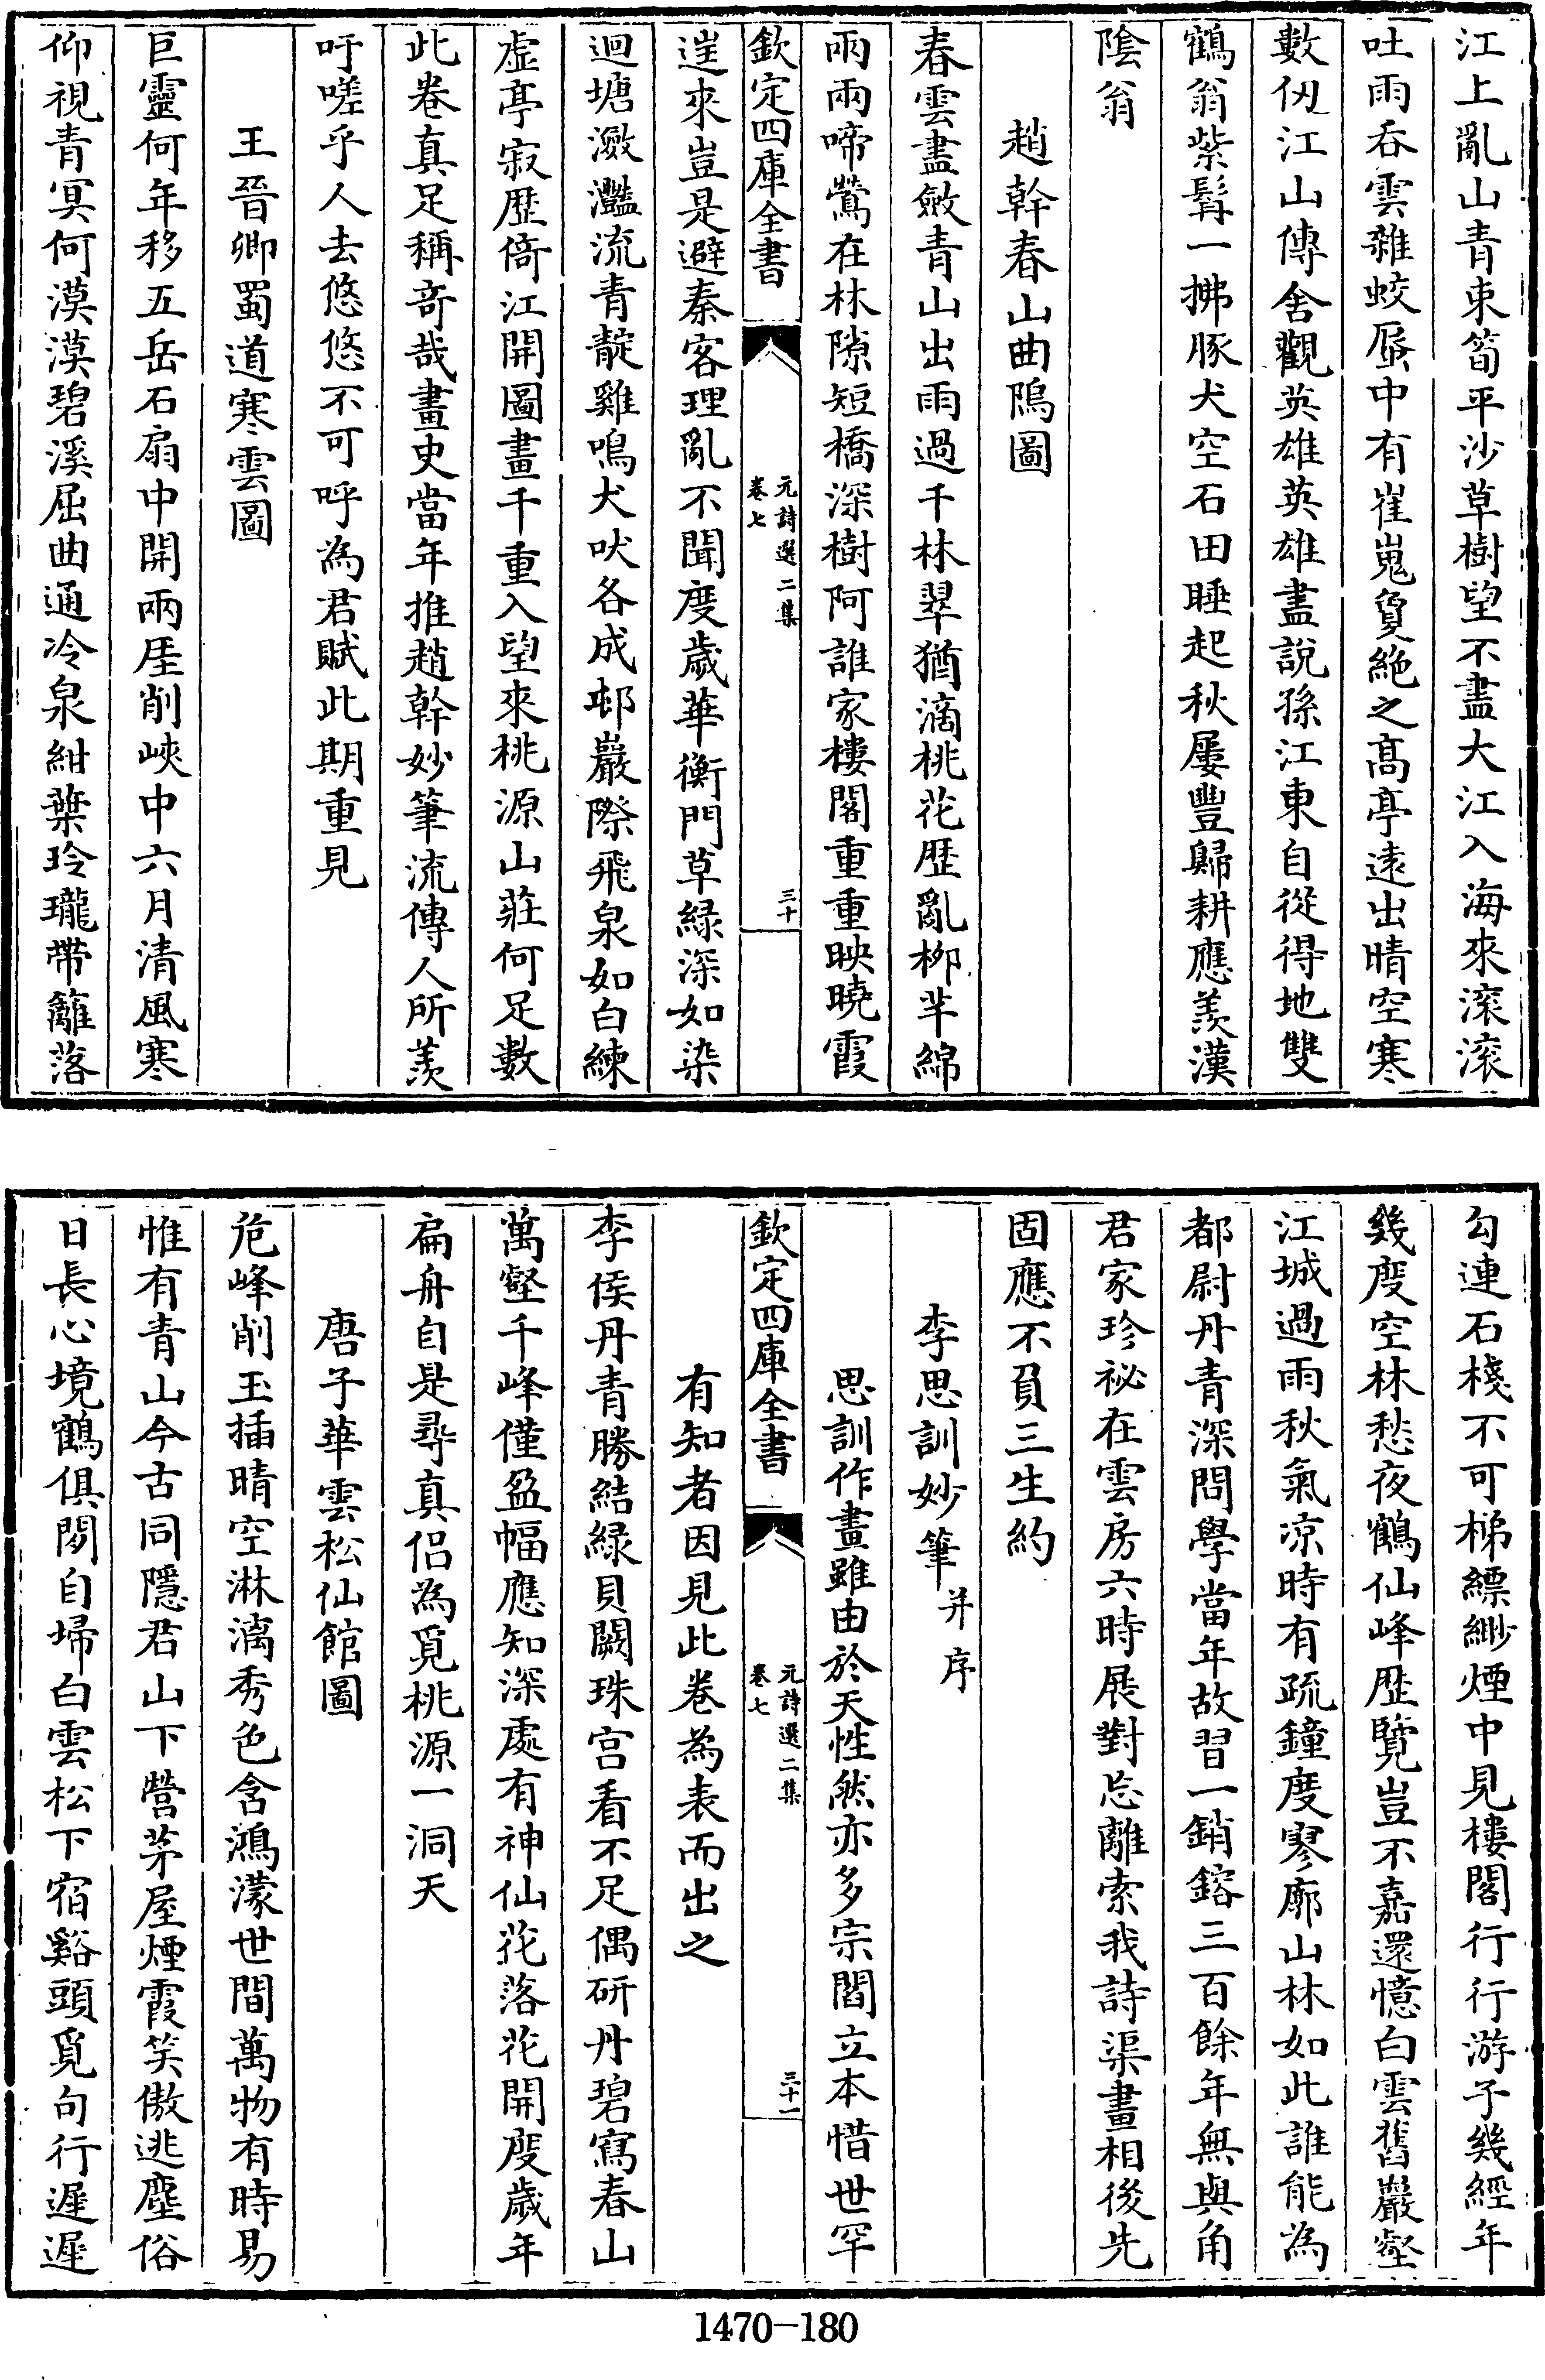 江上亂山青束筍平沙草樹望不盡大江入海來滚滚
吐雨呑雲雜蛟蜃中有崔嵬夐絶之髙亭逺出晴空寒
數仭江山傳舍觀英雄英雄盡說孫江東自從得地雙
鶴翁紫髯一拂豚犬空石田睡起秋屢豐歸耕應羨漢
隂翁
趙幹春山曲隖圖
春雲盡斂青山出雨過千林翠猶滴桃花歴亂栁芊綿
兩兩啼鶯在林隙短橋深樹阿誰家樓閣重重映曉霞
欽定四庫全書
元詩選二集
卷七
三十
遑來豈是避秦客理亂不聞度歲華衡門草緑深如染
迴塘瀲灩流青靛雞鳴犬吠各成邨巖際飛泉如白練
虚亭寂歴倚江開圖畫千重入望來桃源山莊何足數
此卷真足稱竒哉畫史當年推趙幹妙筆流傳人所羨
吁嗟乎人去悠悠不可呼為君賦此期重見
王晉卿蜀道寒雲圖
巨靈何年移五岳石扇中開兩厓削峽中六月清風寒
仰視青冥何漠漠碧溪屈曲通冷泉紺葉玲瓏帶籬落
勾連石棧不可梯縹緲煙中見樓閣行行游子幾經年
幾度空林愁夜鶴仙峰歴覽豈不嘉還憶白雲舊巖壑
江城過雨秋氣凉時有疏鐘度寥廓山林如此誰能為
都尉丹青深問學當年故習一銷鎔三百餘年無與角
君家珍祕在雲房六時展對忘離索我詩渠畫相後先
固應不負三生約
李思訓妙筆并序
思訓作畫雖由於天性然亦多宗閻立本惜世罕
欽定四庫全書
元詩選二集
卷七
三十一
有知者因見此卷為表而出之
李侯丹青勝結緑貝闕珠宫看不足偶研丹碧寫春山
萬壑千峰僅盈幅應知深處有神仙花落花開度歲年
扁舟自是尋真侣為覓桃源一洞天
唐子華雲松仙館圖
危峰削玉插晴空淋漓秀色含鴻濛世間萬物有時易
惟有青山今古同隱君山下營茅屋煙霞笑傲逃塵俗
日長心境鶴俱閒自埽白雲松下宿谿頭覓句行遲遲
1470-180